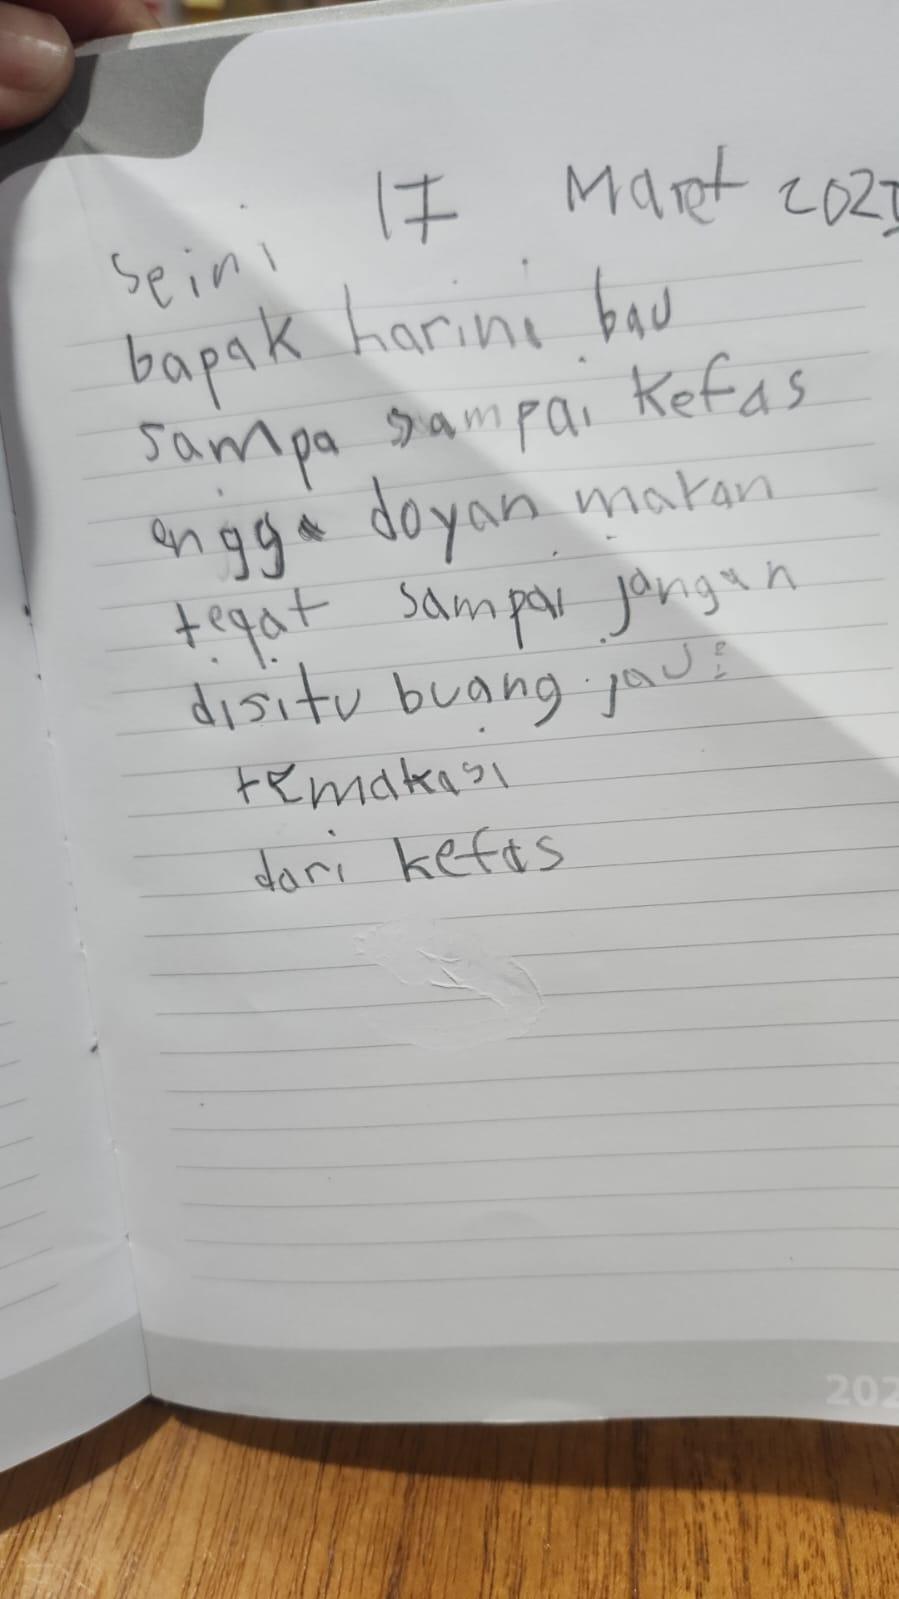 17 Maret 202
seini
bapak harini bau
sampa sampai kefas
engga doyan makan
teqat sampai jangan
disitu buang jau:
temakasi
dari kefas
202